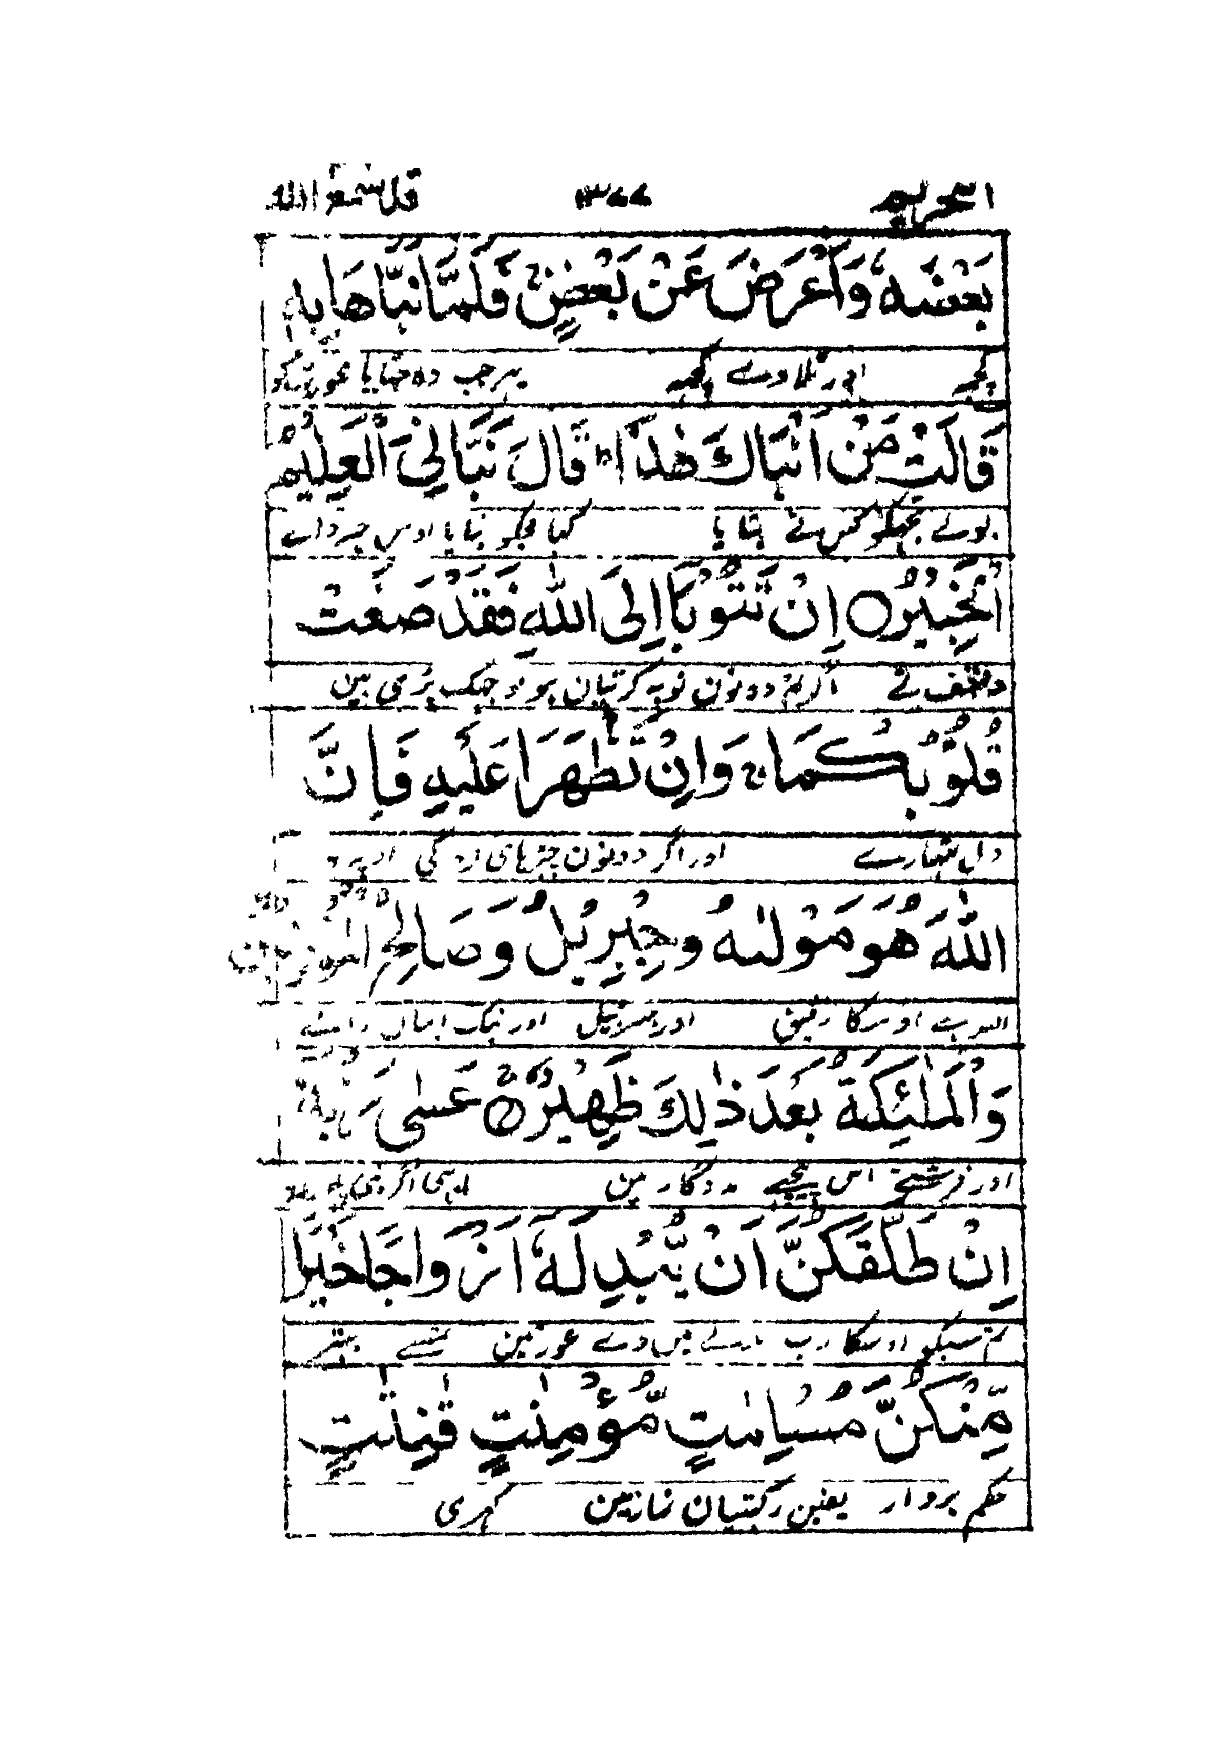 التحريم ١٣٧٧ قد سمع الله
بَعْضَهٗ وَاَعْرَضَ عَنْ بَعْضٍ ۚ فَلَمَّا نَبَّاَهَا بِهٖ
کچھ اور ٹلا دے کچھ پہر جب وہ جتایا عورت کو
قَالَتْ مَنْ اَنْۢبَاَكَ هٰذَا ؕ قَالَ نَبَّاَنِیَ الْعَلِيْمُ
بولے تجھکو کس نے بتایا کہا مجکو بتایا اوس خبردار
الْخَبِيْرُ ○ اِنْ تَتُوْبَآ اِلَى اللّٰهِ فَقَدْ صَغَتْ
واقف نے اگر تم دونون توبہ کرتیان ہو تو جہک پڑی ہین
قُلُوْبُكُمَا ۚ وَاِنْ تَظٰهَرَا عَلَيْهِ فَاِنَّ
دل تمہارے اور اگر دونون چڑہائی کرو گی اوپر
اللّٰهَ هُوَ مَوْلٰىهُ وَجِبْرِيْلُ وَصَالِحُ الْمُؤْمِنِيْنَ
اللہ ہے اوسکا رفیق اور جبرئیل اور نیک ایمان والے
وَالْمَلٰٓئِكَةُ بَعْدَ ذٰلِكَ ظَهِيْرٌ ○ عَسٰى رَبُّهٗٓ
اور فرشتے اس پیچھے مددگار ہین ابہی اگر نبی
اِنْ طَلَّقَكُنَّ اَنْ يُّبْدِلَهٗٓ اَزْوَاجًا خَيْرًا
تم سبکو اوسکا رب بدلے مین دے عورتین تمسے بہتر
مِّنْكُنَّ مُسْلِمٰتٍ مُّؤْمِنٰتٍ قٰنِتٰتٍ
حکم بردار یقین رکہتیان نمازمین کہڑی